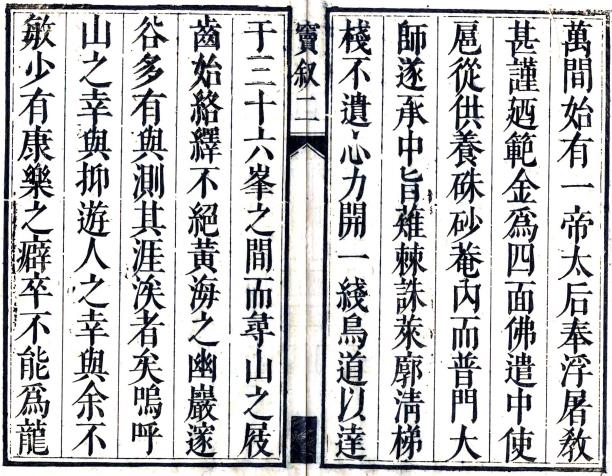 萬間始有一帝太后奉浮屠教
甚謹廼範金爲四面佛遣中使
扈從供養硃砂菴內而普門大
師遂承中旨薙棘誅萊廓清梯
棧不遺心力開一綫鳥道以達
竇叙二
于三十六峯之間而尋山之屐
齒始絡繹不絕黃海之幽巖邃
谷多有與測其涯涘者矣嗚呼
山之幸與抑遊人之幸與余不
敏少有康樂之癖卒不能爲龍